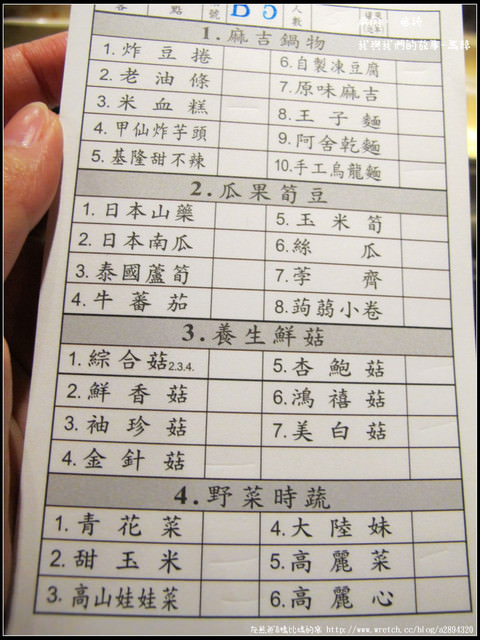 點
號 B5
人數
我與我們的故事‧馬錶
1.麻吉鍋物
1.炸豆捲 6.自製凍豆腐
2.老油條 7.原味麻吉
3.米血糕 8.王子麵
4.甲仙炸芋頭 9.阿舍乾麵
5.基隆甜不辣 10.手工烏龍麵
2.瓜果筍豆
1.日本山藥 5.玉米筍
2.日本南瓜 6.絲瓜
3.泰國蘆筍 7.荸薺
4.牛蕃茄 8.蒟蒻小卷
3.養生鮮菇
1.綜合菇2.3.4. 5.杏鮑菇
2.鮮香菇 6.鴻禧菇
3.袖珍菇 7.美白菇
4.金針菇
4.野菜時蔬
1.青花菜 4.大陸妹
2.甜玉米 5.高麗菜
3.高山娃娃菜 6.高麗心
http://www.wretch.cc/blog/a2894320